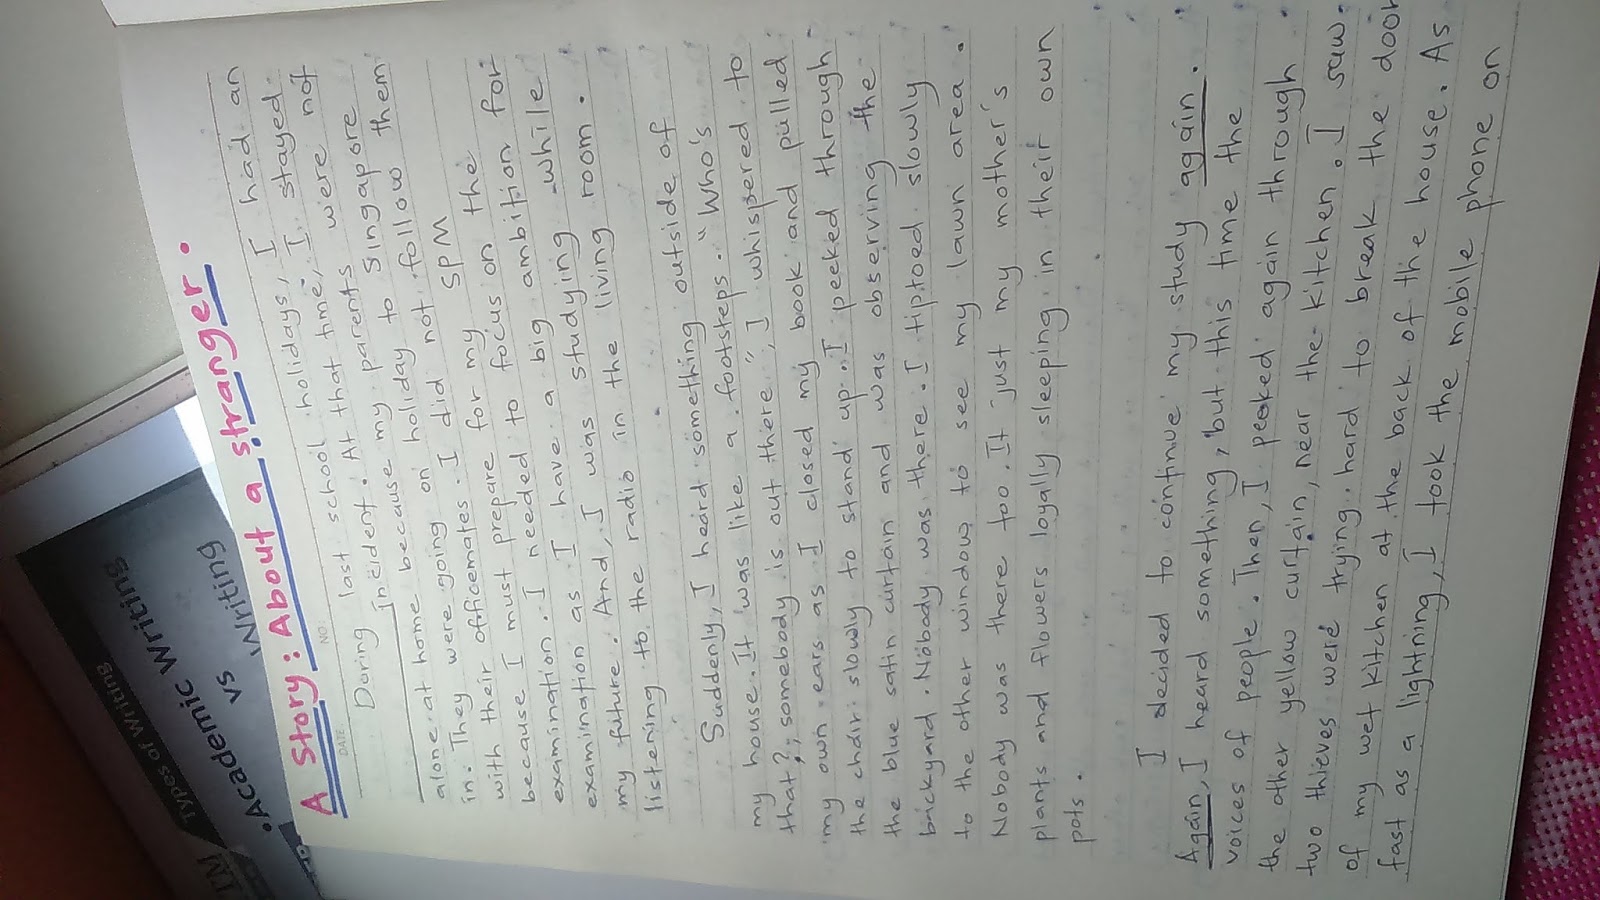 Types of Writing
• Academic Writing
vs
Writing
A Story : About a stranger.
DATE
NO:
During last school holidays, I had an
incident. At that time, I stayed
alone at home because my parents were not
in. They were going on holiday to Singapore
with their officemates. I did not follow them
because I must prepare for my SPM
examination. I needed to focus on the
examination as I have a big ambition for
my future. And, I was studying while
listening to the radio in the living room.
Suddenly, I heard something outside of
my house. It was like a footsteps. "Who's
that?, somebody is out there", I whispered to
my own ears as I closed my book and pulled
the chair slowly to stand up. I peeked through
the blue satin curtain and was observing the
backyard. Nobody was there. I tiptoed slowly
to the other window to see my lawn area.
Nobody was there too. It just my mother's
plants and flowers loyally sleeping in their own
pots.
I decided to continue my study again.
Again, I heard something, but this time the
voices of people. Then, I peaked again through
the other yellow curtain, near the kitchen. I saw
two thieves were trying hard to break the door
of my wet kitchen at the back of the house. As
fast as a lightning, I took the mobile phone on